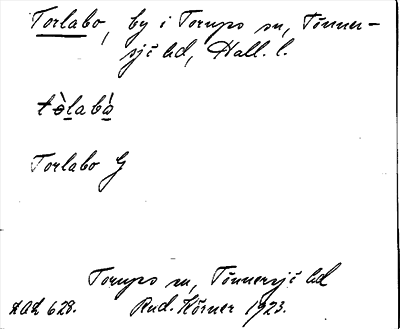 Torlabo, by i Torups sn, Tönner-
sjö hd, Hall. l.
tòlabà
Torlabo G
Torups sn, Tönnersjö hd
Rud. Körner 1923.
628.